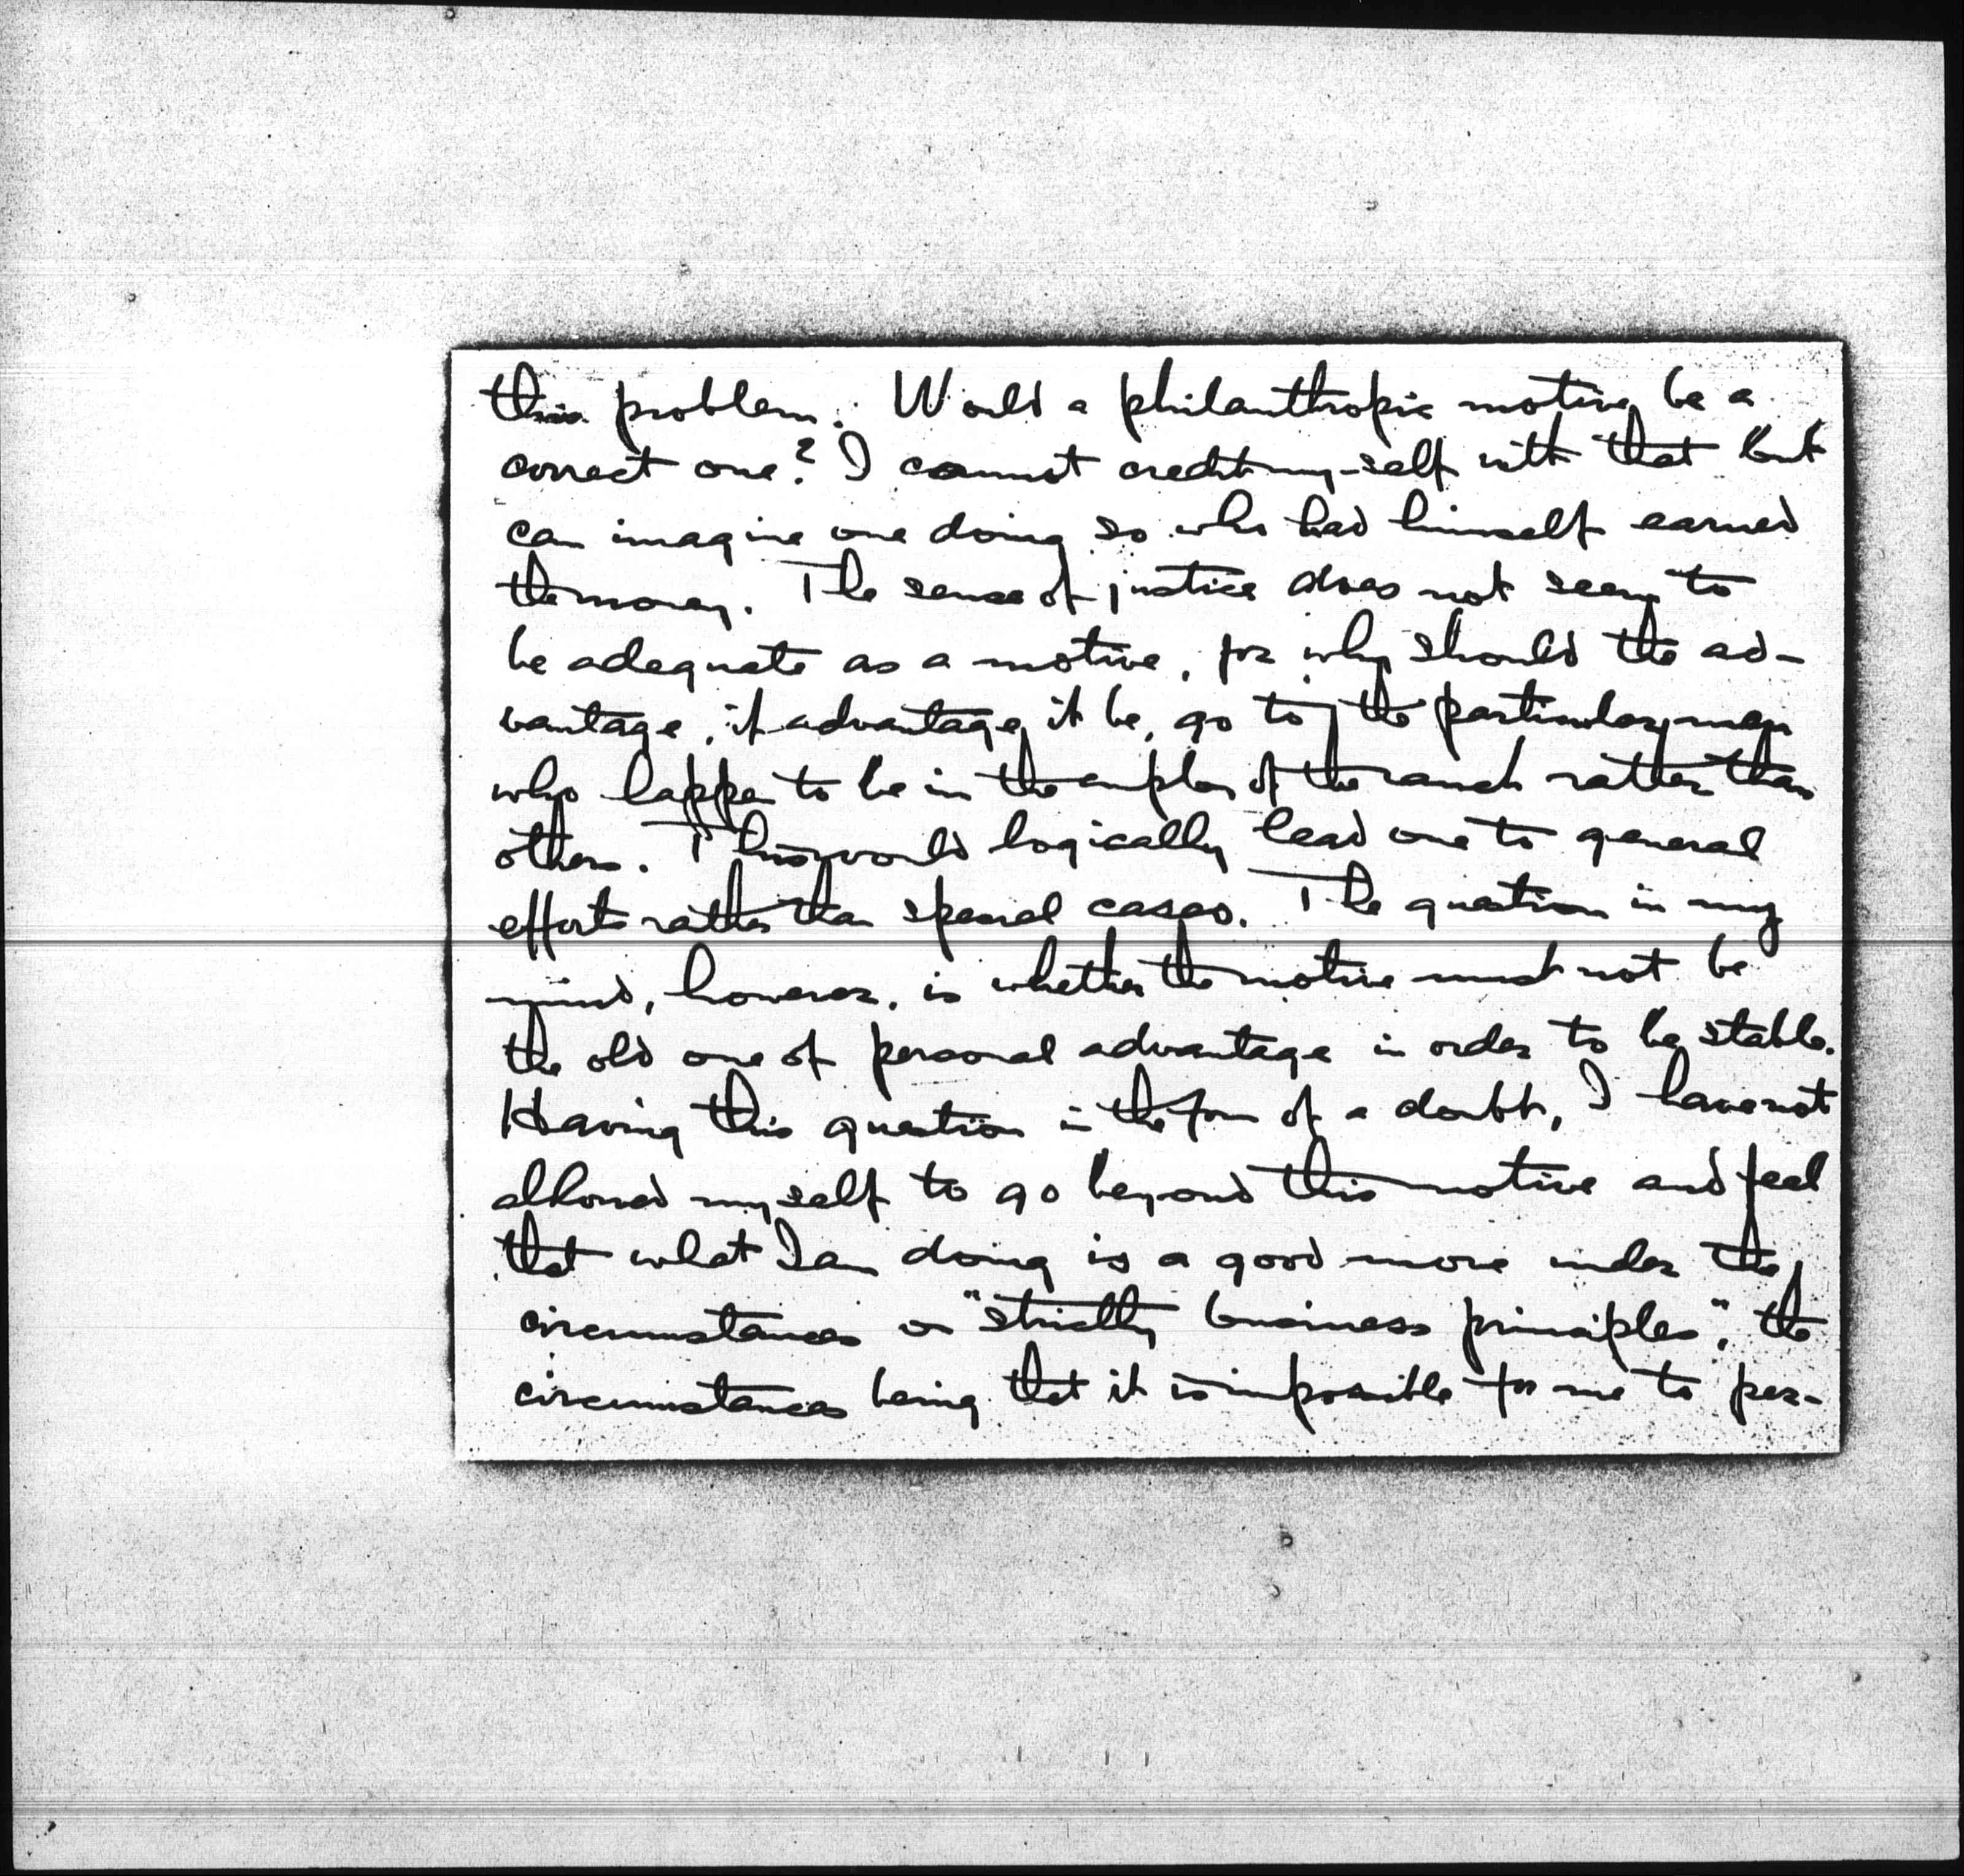 this problem. Would a philanthropic motive be a
correct one? I cannot credit my-self with that but
can imagine one doing so who had himself earned
the money. The sense of justice does not seem to
be adequate as a motive, for why should the ad-
vantage, if advantage it be, go to the particular men
who happen to be in the employ of the ranch rather than
others. This would logically lead one to general
efforts rather than special cases. The question in my
mind, however, is whether the motive must not be
the old one of personal advantage in order to be stable.
Having this question in the form of a doubt, I have not
allowed myself to go beyond this motive and feel
that what I am doing is a good move under the
circumstances on "strictly business principles", the
circumstances being that it is impossible for me to per-